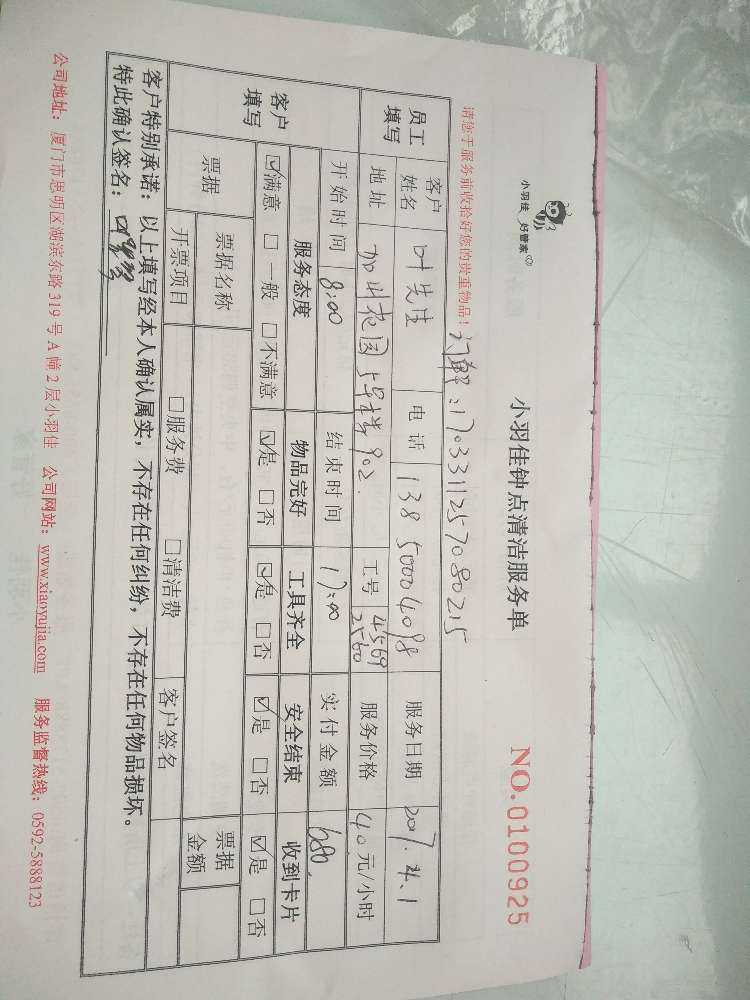 小羽佳 好管家
小羽佳钟点清洁服务单
NO.0100925
请您于服务前收拾好您的贵重物品！订单：1703311257080215
员工填写 客户姓名 叶先生 电话 13850004098 服务日期 2017.4.1
地址 加州花园5号楼902. 工号 4569 2560 服务价格 40元/小时
客户填写 开始时间 8:00 结束时间 17:00 实付金额 680
服务态度 物品完好 工具齐全 安全结束 收到卡片
☑满意 □一般 □不满意 ☑是 □否 ☑是 □否 ☑是 □否 ☑是 □否
票据 票据名称 票据金额
开票项目 □服务费 □清洁费 客户签名
客户特别承诺：以上填写经本人确认属实，不存在任何纠纷，不存在任何物品损坏。
特此确认签名：
公司地址：厦门市思明区湖滨东路319号A幢2层小羽佳 公司网站：www.xiaoyujia.com 服务监督热线：0592-5888123